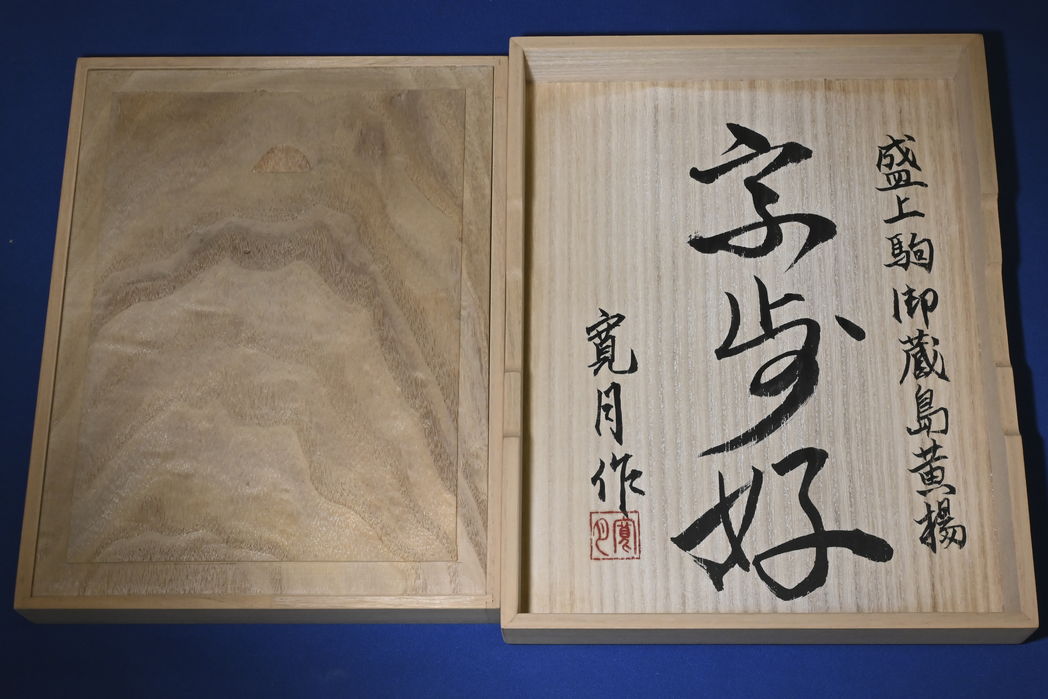 盛上駒御蔵島黄楊
宗歩好
寛月作
寛月